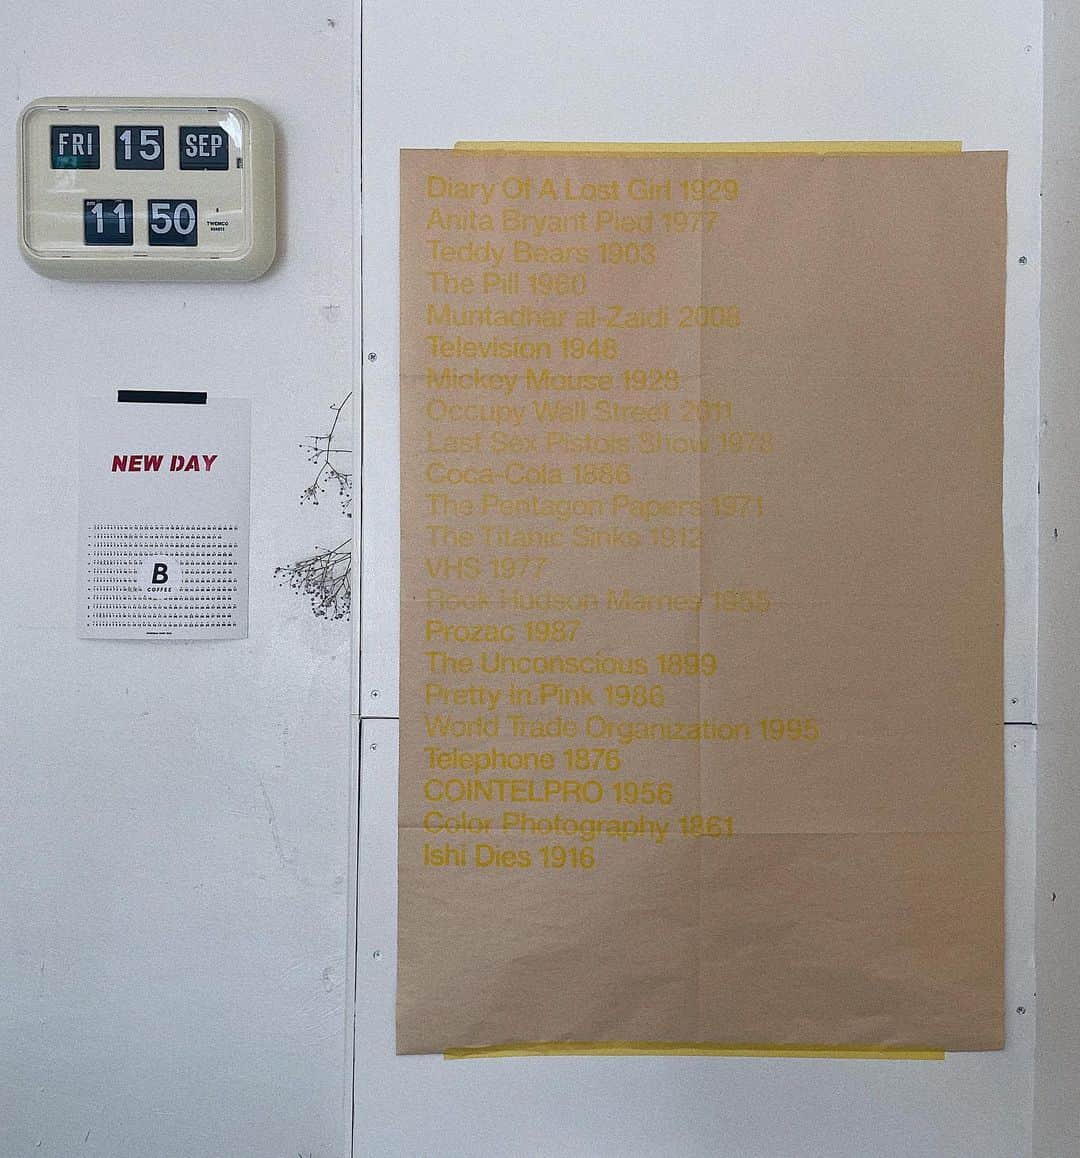 FRI 15 SEP
11 50
TWEMCO
NEW DAY
B
COFFEE
Diary Of A Lost Girl 1929
Anita Bryant Pied 1977
Teddy Bears 1903
The Pill 1960
Muntadhar al-Zaidi 2008
Television 1948
Mickey Mouse 1928
Occupy Wall Street 2011
Last Sex Pistols Show 1978
Coca-Cola 1886
The Pentagon Papers 1971
The Titanic Sinks 1912
VHS 1977
Rock Hudson Marries 1955
Prozac 1987
The Unconscious 1899
Pretty in Pink 1986
World Trade Organization 1995
Telephone 1876
COINTELPRO 1956
Color Photography 1861
Ishi Dies 1916